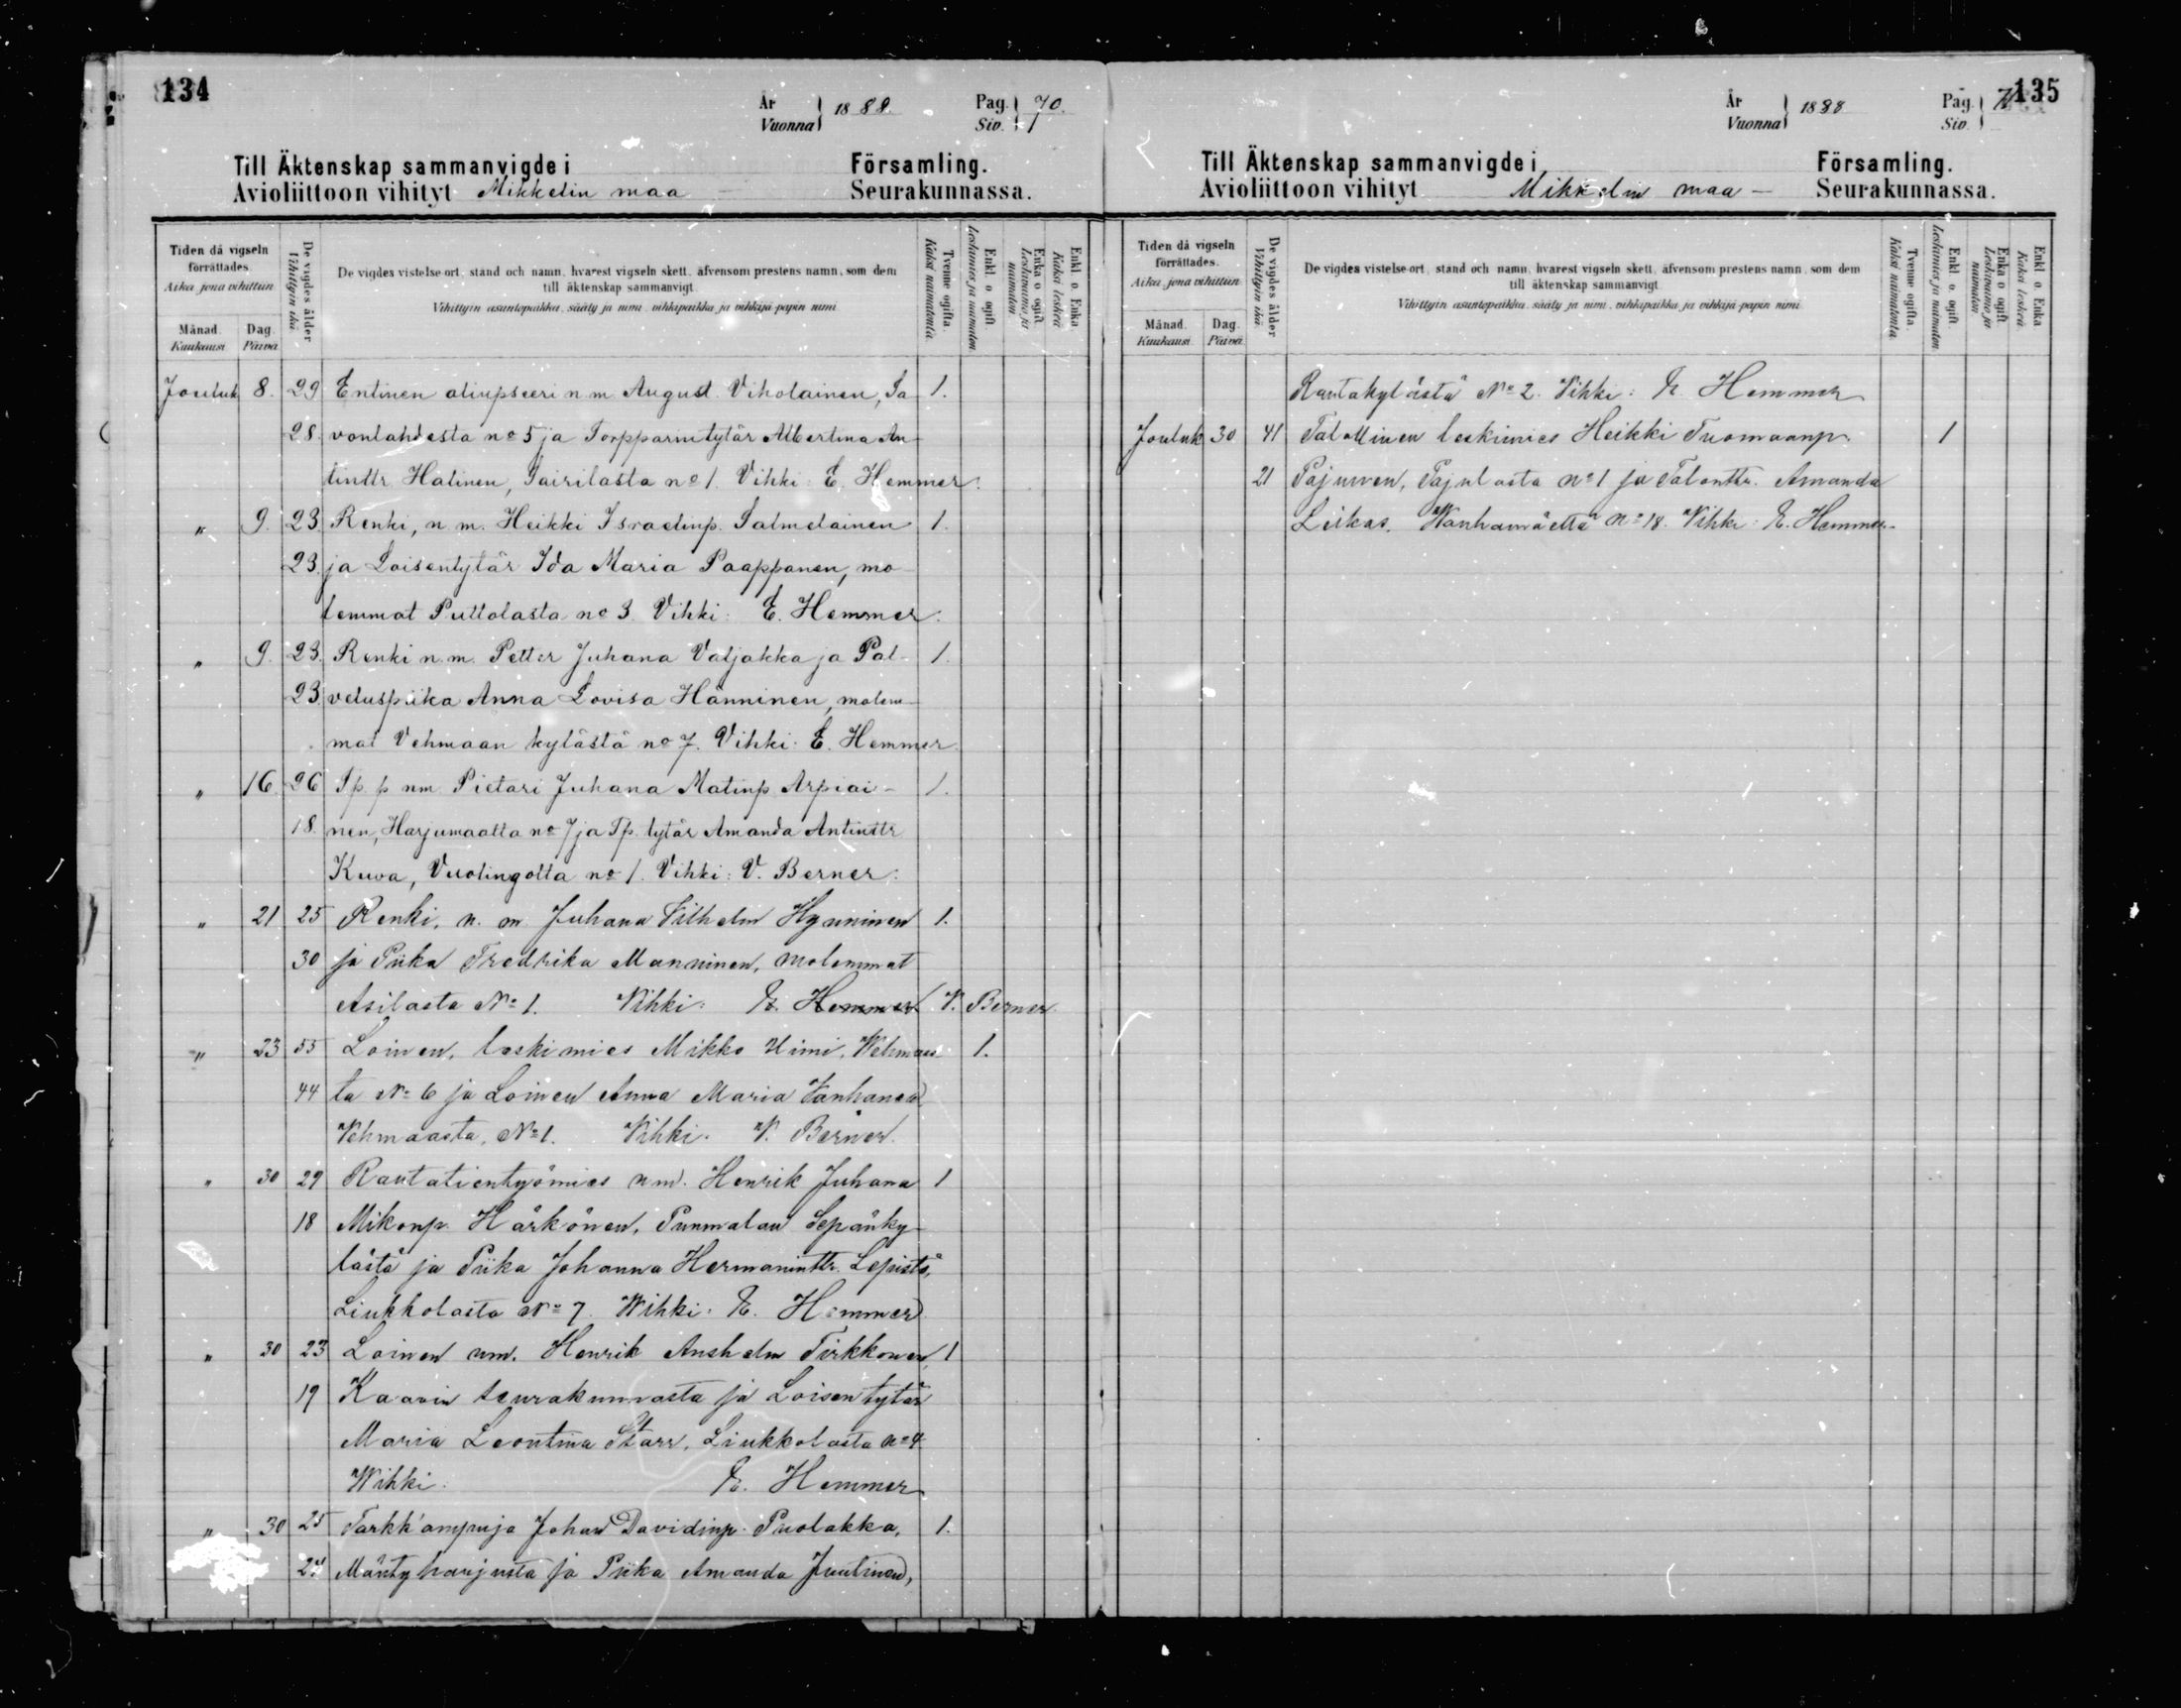 134
År
Vuonna
1888.
Pag.
Siv.
70.
Till Äktenskap sammanvigde i Församling.
Avioliittoon vihityt Mikkelin maa — Seurakunnassa.
Tiden då vigseln förrättades.
Aika jona vihittiin
Månad.
Kuukausi
Dag.
Päivä
De vigdes ålder
Vihittyin ikä
De vigdes vistelse-ort, stånd och namn, hvarest vigseln skett, äfvensom prestens namn, som dem
till äktenskap sammanvigt
Vihittyin asuntopaikka, sääty ja nimi, vihkipaikka ja vihkijä-papin nimi
Tvenne ogifta.
Kaksi naimatonta.
Enkl. o. ogift.
Leskimies ja naimaton.
Enka o. ogift
Leskivaimo ja naimaton
Enkl. o. Enka
Kaksi leskeä
Jouluk. 8. 29 Entinen aliupseeri n.m. August Viholainen, Sa- 1.
28. vonlahdesta no 5 ja Torpparintytär Albertina An-
tinttr Halinen, Sairilasta no 1. Vihki: E. Hemmer.
„ 9. 23. Renki, n.m. Heikki Israelinp. Salmelainen 1.
23. ja Loisentytär Ida Maria Paappanen, mo-
lemmat Puttolasta no 3. Vihki: E. Hemmer.
„ 9. 23. Renki n.m. Petter Juhana Valjakka ja Pal- 1.
23. veluspiika Anna Lovisa Hänninen, molem-
mat Vehmaan kylästä no 7. Vihki: E. Hemmer
„ 16. 26 Tp. p. nm. Pietari Juhana Matinp. Arpiai- 1.
18. nen, Harjumaalta no 7 ja Tp. tytär Amanda Antinttr
Kuva, Vuolingolta no 1. Vihki: V. Berner.
„ 21 25 Renki, n.m. Juhana Vilhelm Hynninen 1.
30 ja Piika Fredrika Manninen, molemmat
Asilasta No 1. Vihki: E. Hemmer V. Berner.
„ 23 55 Loinen, leskimies Mikko Himi, Wehmaas- 1.
44 ta No 6 ja Loinen Anna Maria Vanhanen
Vehmaasta, No 1. Vihki: V. Berner.
„ 30 29 Rautatientyömies nm. Henrik Juhana 1
18 Mikonp. Härkönen, Punmalan Sepänky-
lästä ja Piika Johanna Hermaninttr. Lepistö,
Liukkolasta No 7. Wihki: E. Hemmer
„ 30 23 Loinen nm. Henrik Anshelm Tirkkonen, 1
19 Kaavin seurakunnasta ja Loisentytär
Maria Leontina Starr, Liukkolasta No 4
Wihki: E. Hemmer
„ 30 25 Tarkk'ampuja Johan Davidinp. Puolakka, 1.
24 Mäntyharjusta ja Piika Amanda Juutinen,
135
År
Vuonna
1888
Pag.
Siv.
Till Äktenskap sammanvigde i Församling.
Avioliittoon vihityt Mikkelin maa — Seurakunnassa.
Tiden då vigseln förrättades.
Aika jona vihittiin
Månad.
Kuukausi
Dag.
Päivä
De vigdes ålder
Vihittyin ikä
De vigdes vistelse-ort, stånd och namn, hvarest vigseln skett, äfvensom prestens namn, som dem
till äktenskap sammanvigt
Vihittyin asuntopaikka, sääty ja nimi, vihkipaikka ja vihkijä-papin nimi
Tvenne ogifta.
Kaksi naimatonta
Enkl. o. ogift
Leskimies ja naimaton.
Enka o. ogift
Leskivaimo ja naimaton
Enkl. o. Enka
Kaksi leskeä
Rautakylästä No 2. Vihki: E. Hemmer
Jouluk 30 41 Talollinen leskimies Heikki Tuomaanp. 1
21 Pajunen, Pajulasta No 1 ja Talonttr. Amanda
Liikas, Wanhamäeltä No 18. Vihki: E. Hemmer.